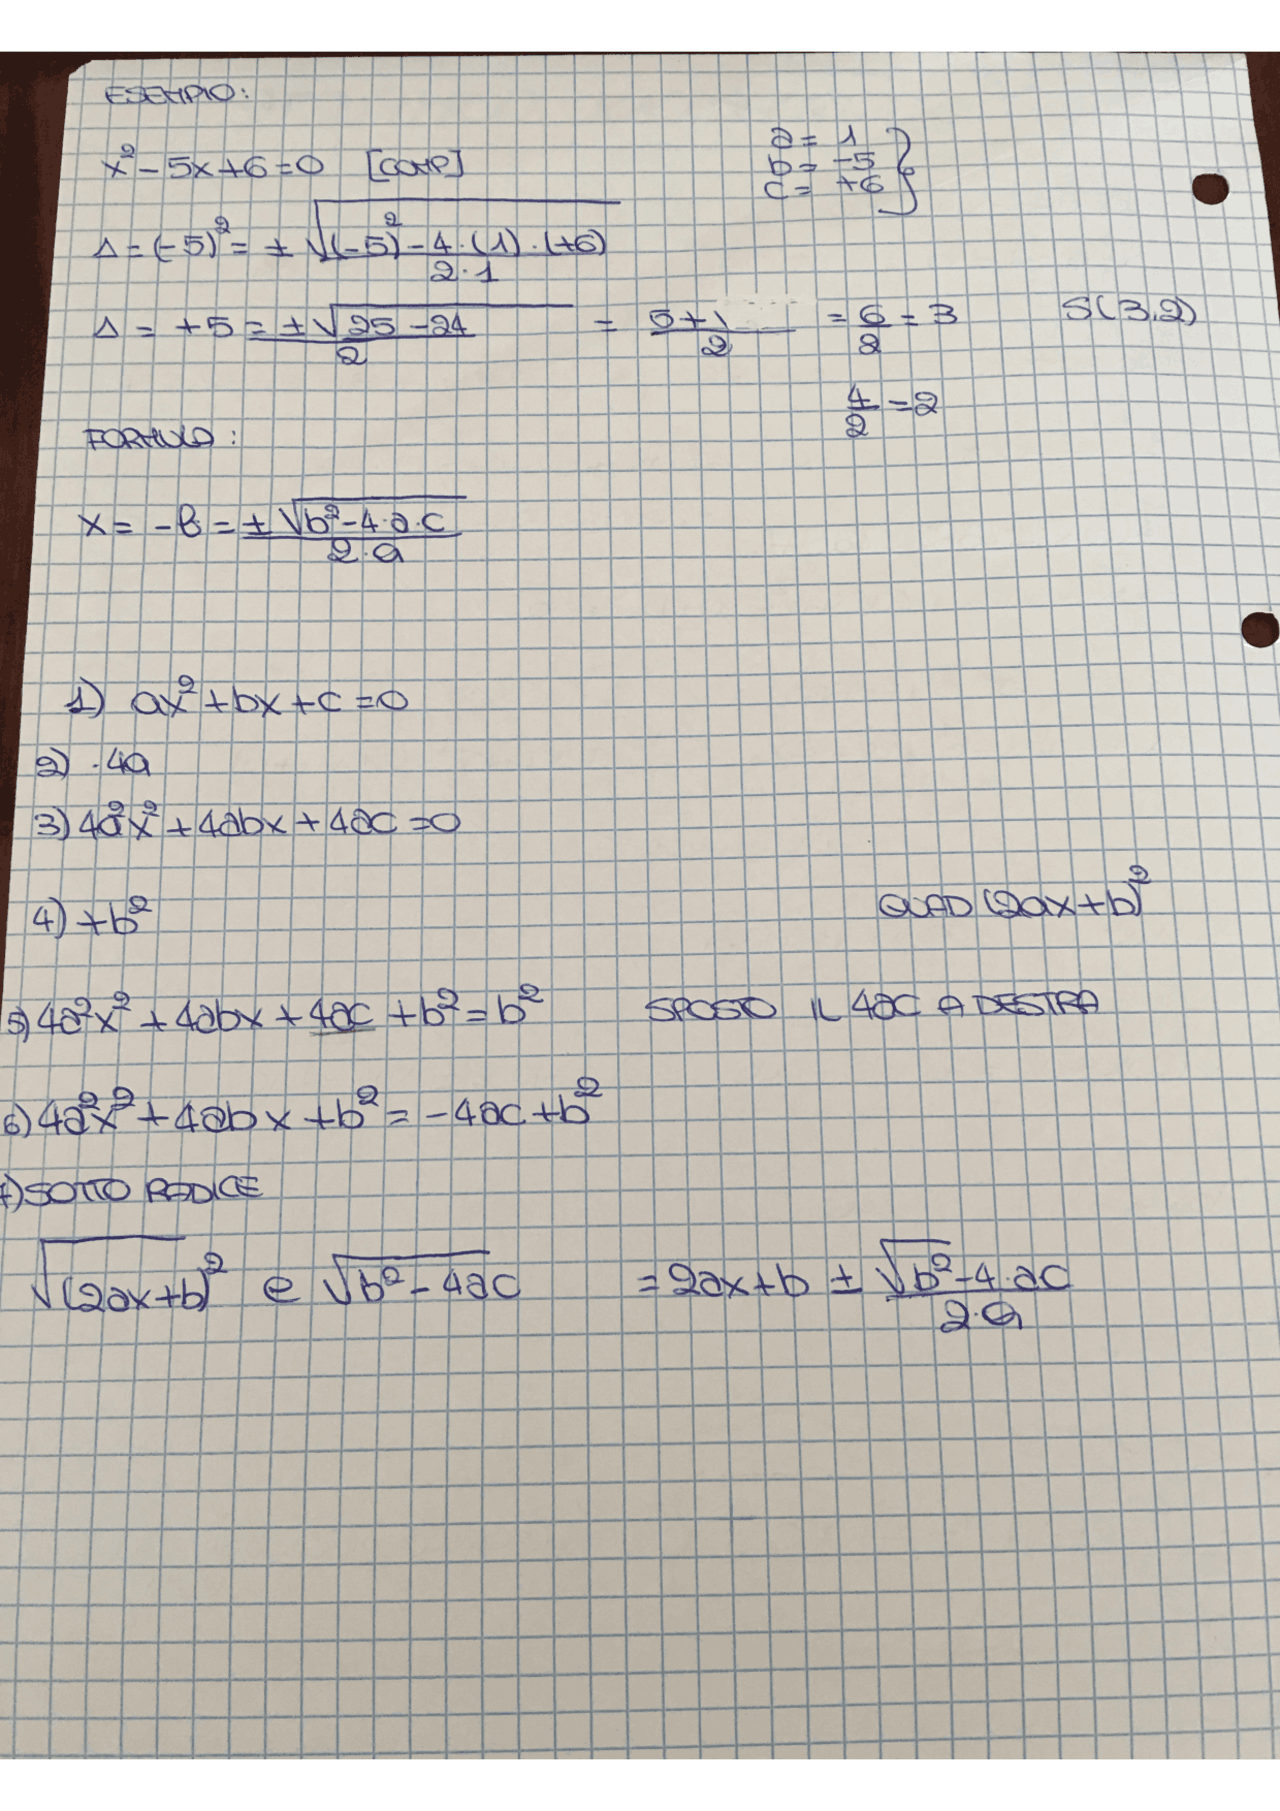 ESEMPIO:
x² - 5x + 6 = 0 [COMP]
a = 1
b = -5
c = +6
Δ = (-5)² = ± √(-5)² - 4·(1)·(+6) / 2·1
Δ = +5 = ± √25 - 24 / 2 = 5+1 / 2 = 6/2 = 3 S(3,2)
4/2 = 2
FORMULA:
x = -b = ± √b²-4·a·c / 2·a
1) ax² + bx + c = 0
2) ·4a
3) 4a²x² + 4abx + 4ac = 0
4) +b² QUAD (2ax+b)²
5) 4a²x² + 4abx + 4ac + b² = b² SPOSTO IL 4ac A DESTRA
6) 4a²x² + 4abx + b² = -4ac + b²
7) SOTTO RADICE
√(2ax+b)² e √b² - 4ac = 2ax+b ± √b²-4·ac / 2·a